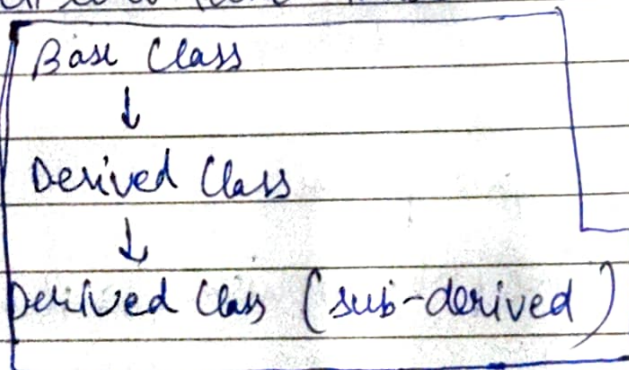 Base Class
↓
Derived Class
↓
Derived Class (sub-derived)